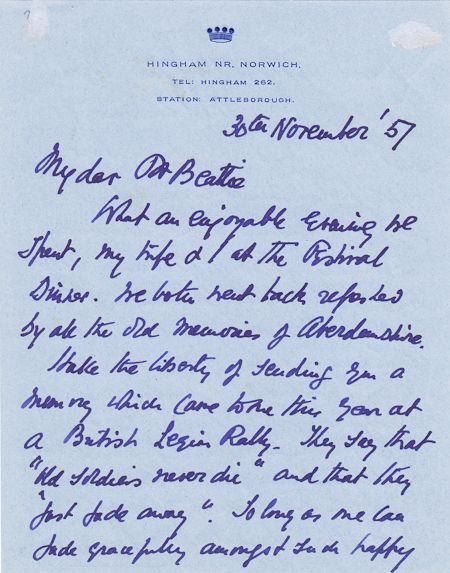 HINGHAM NR. NORWICH.
TEL: HINGHAM 262.
STATION: ATTLEBOROUGH.
30th November '57
My dear Dr Beattie
What an enjoyable evening we
spent, my wife & I at the Festival
Dinner. We both went back refreshed
by all the old memories of Aberdeenshire.
I take the liberty of sending you a
memory which came to me this year at
a British Legion Rally. They say that
"old soldiers never die" and that they
"just fade away". So long as one can
fade gracefully amongst such happy